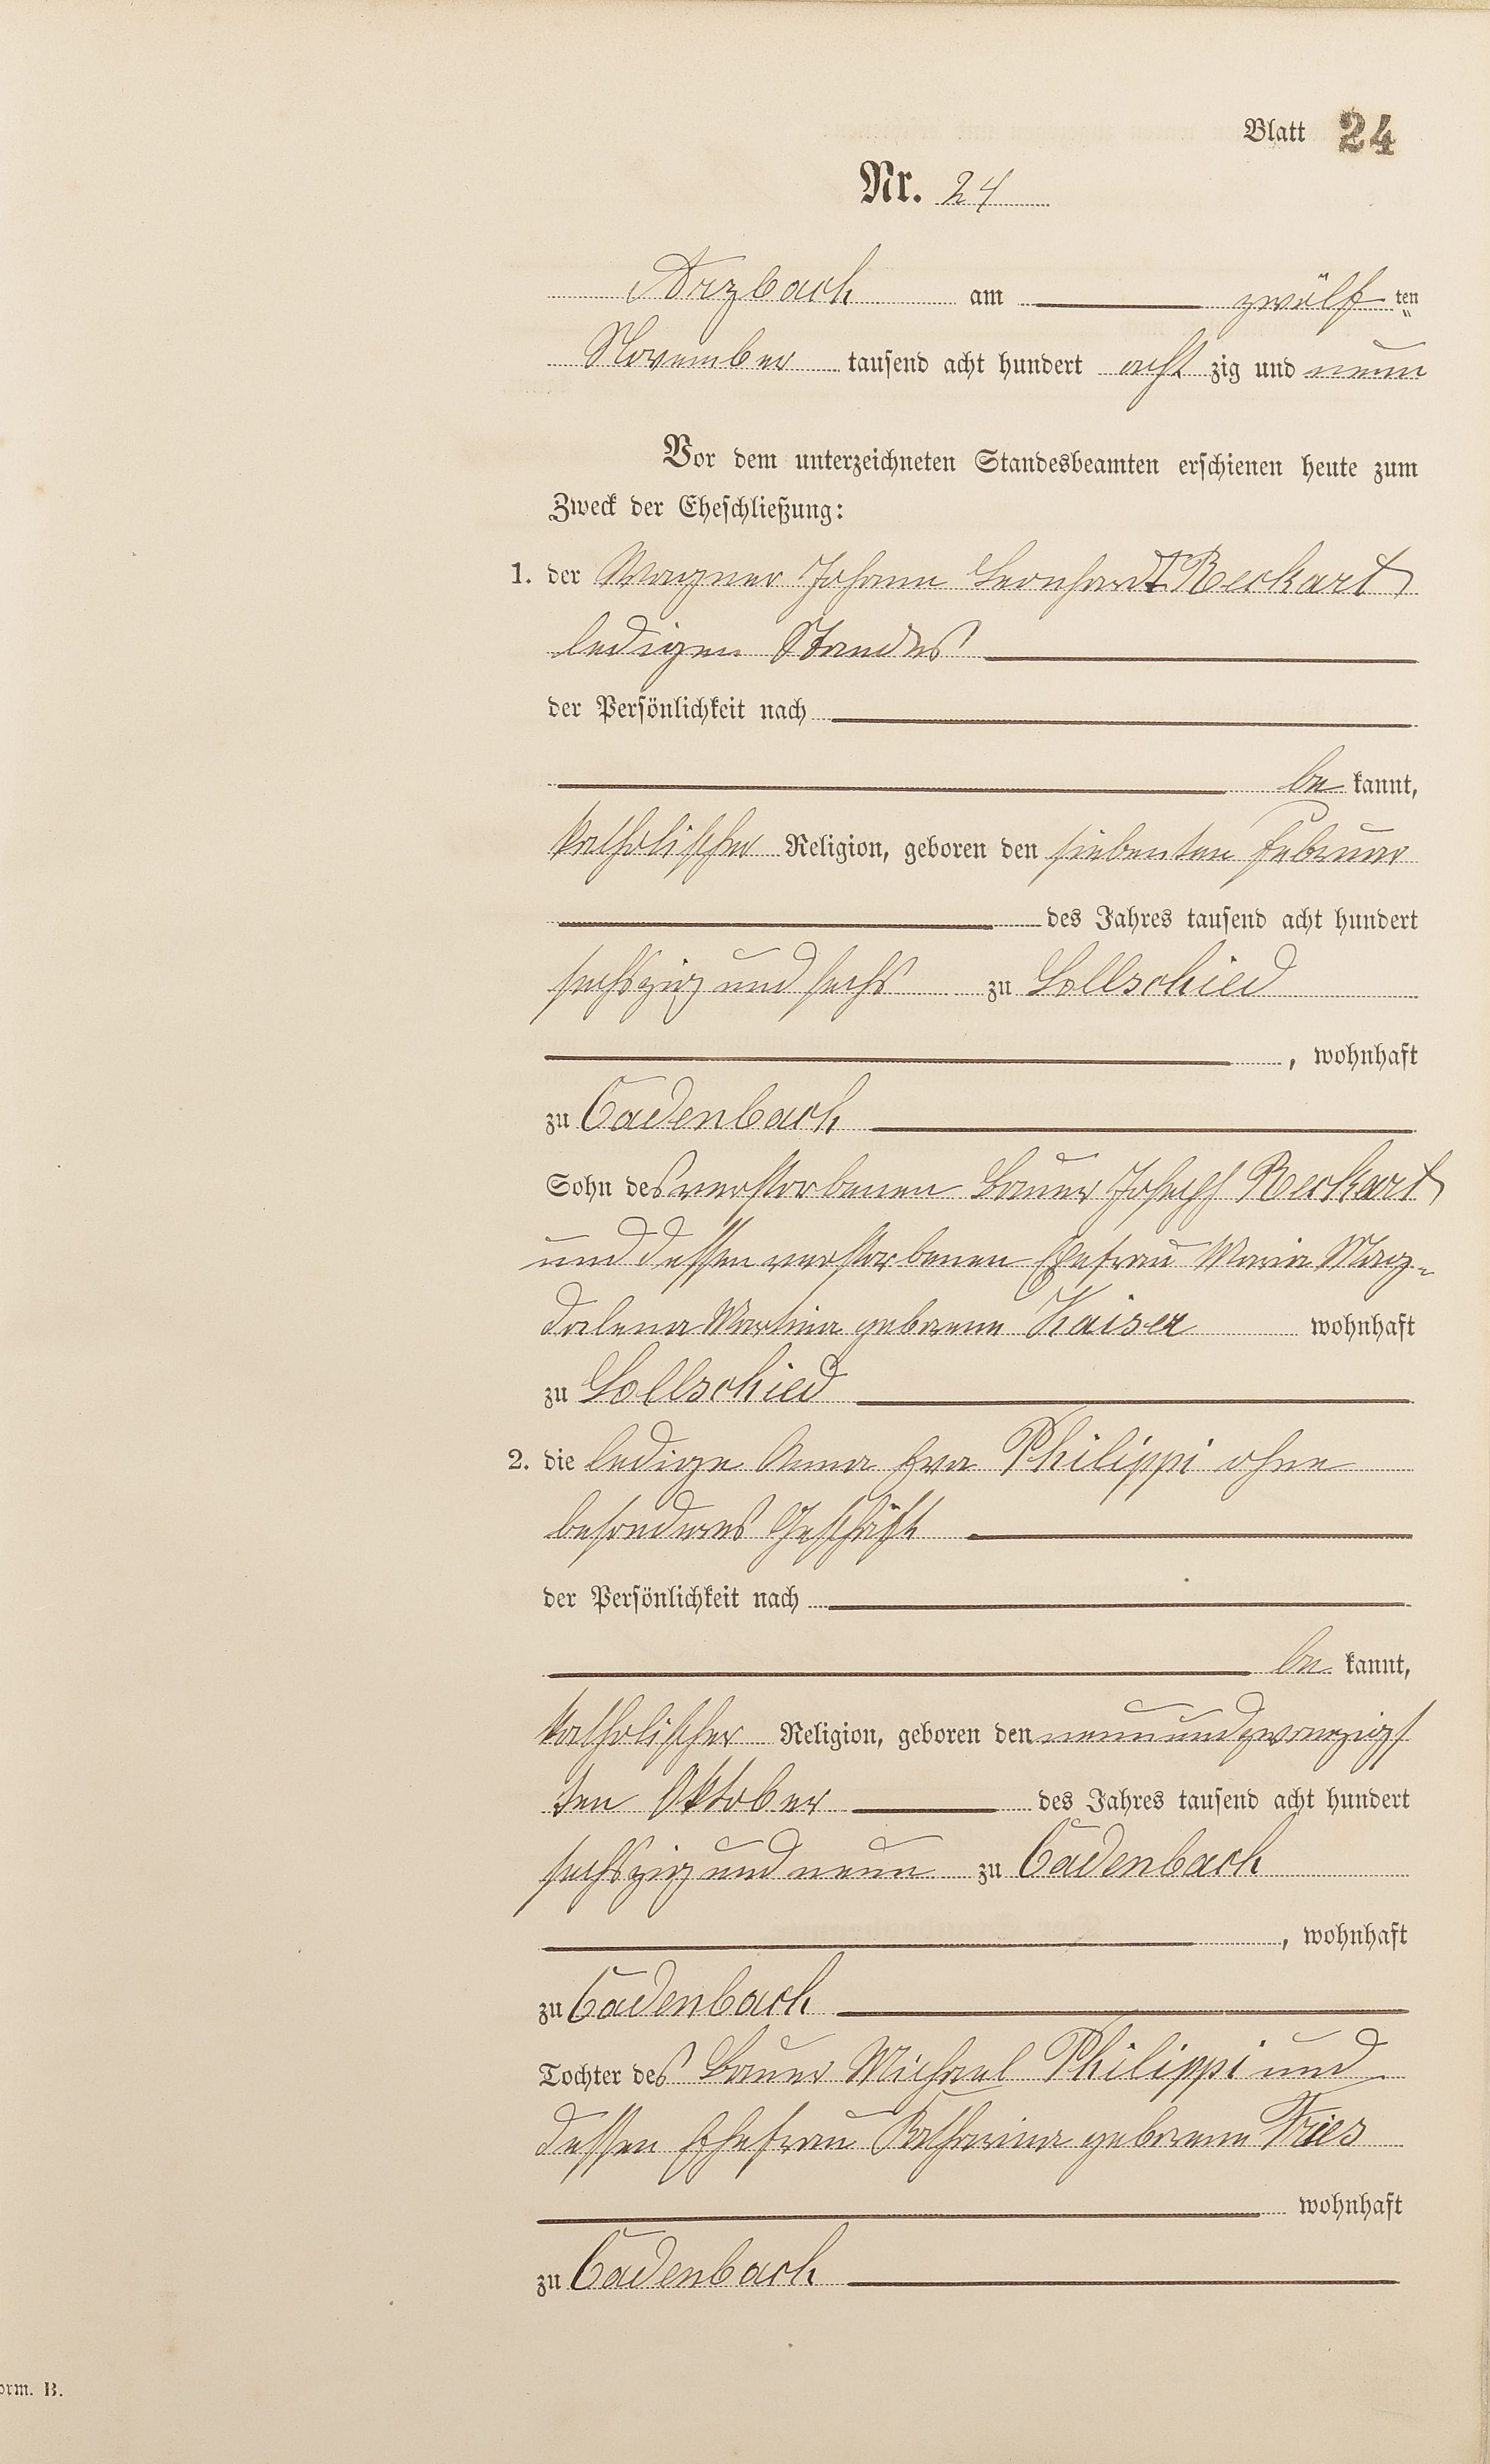 Blatt 24
Nr. 24
Arzbach am zwölf ten
November tausend acht hundert acht zig und neun
Vor dem unterzeichneten Standesbeamten erschienen heute zum
Zweck der Eheschließung:
1. der Wagner Johann Leonhardt Reckart
ledigen Standes
der Persönlichkeit nach
be kannt,
katholischer Religion, geboren den siebenten Februar
des Jahres tausend acht hundert
sechszig und sechs zu Lollschied
, wohnhaft
zu Cadenbach
Sohn des verstorbenen Bauer Joseph Reckart
und dessen verstorbenen Ehefrau Maria Mag-
dalena Martina geborene Kaiser wohnhaft
zu Lollschied
2. die ledige Anna Eva Philippi ohne
besonderes Geschäft
der Persönlichkeit nach
be kannt,
katholischer Religion, geboren den neunundzwanzigs
ten Oktober des Jahres tausend acht hundert
sechszig und neun zu Cadenbach
, wohnhaft
zu Cadenbach
Tochter des Bauer Michael Philippi und
dessen Ehefrau Katharina geborene Fries
wohnhaft
zu Cadenbach
orm. B.